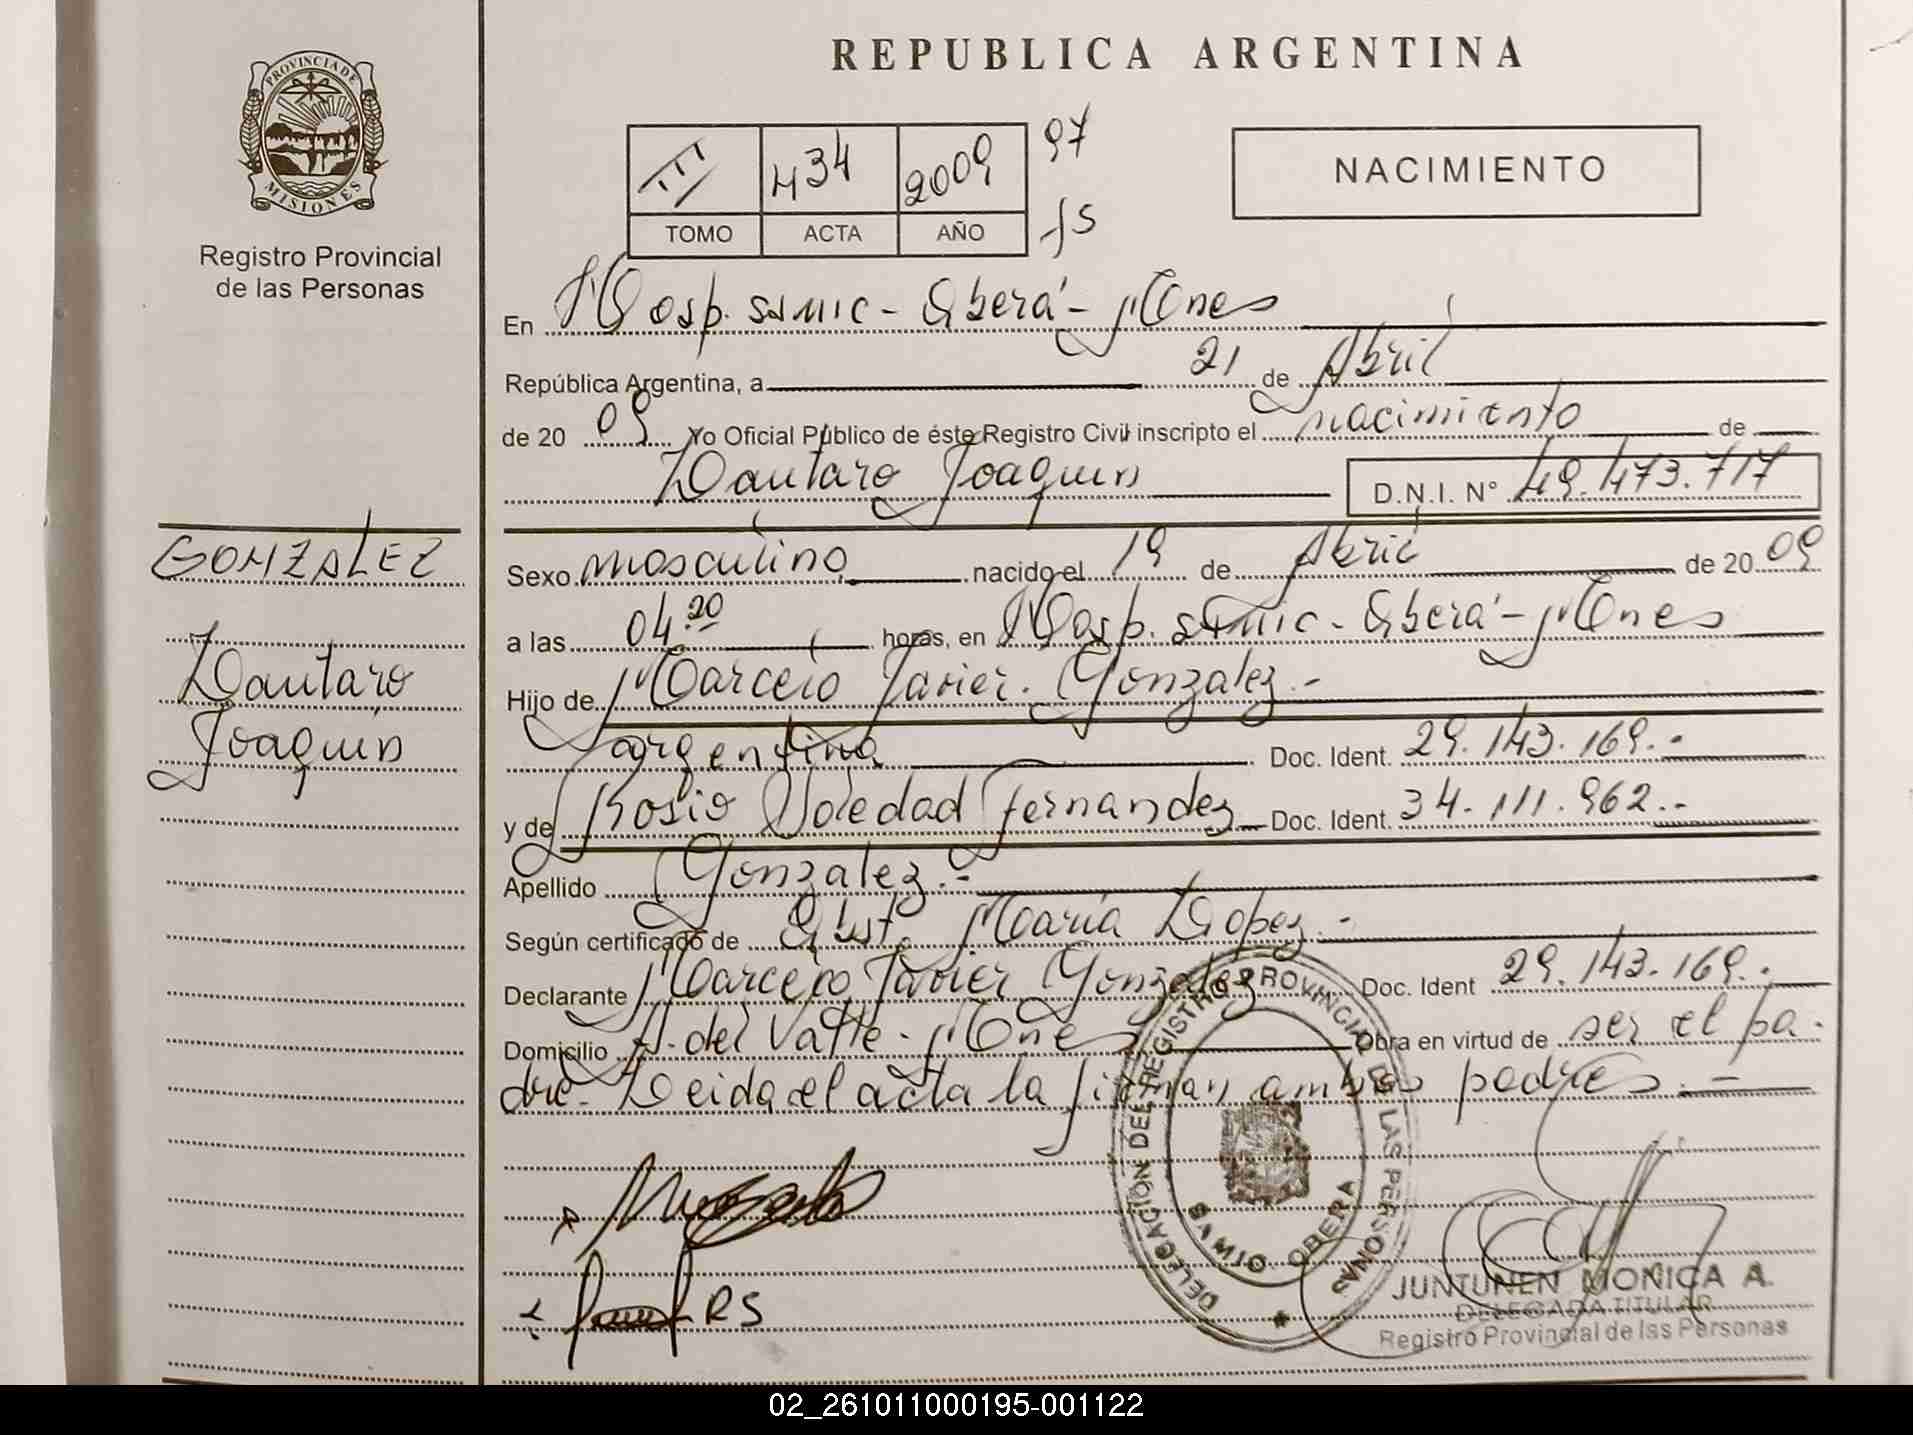 REPUBLICA ARGENTINA
PROVINCIA DE
MISIONES
Registro Provincial
de las Personas
III 434 2009 97
TOMO ACTA AÑO
NACIMIENTO
En Hosp. SAMIC - Oberá - Mnes
República Argentina, a 21 de Abril
de 20 09 Yo Oficial Público de éste Registro Civil inscripto el nacimiento de
Lautaro Joaquin D.N.I. N° 49.473.717
GONZALEZ
Lautaro
Joaquin
Sexo masculino nacido el 19 de Abril de 20 09
a las 04.20 horas, en Hosp. SAMIC - Oberá - Mnes
Hijo de Marcelo Javier Gonzalez.-
argentina Doc. Ident. 29.143.169.-
y de Rosio Soledad Fernandez Doc. Ident. 34.111.962.-
Apellido Gonzalez.-
Según certificado de Obst. María Lopez.-
Declarante Marcelo Javier Gonzalez Doc. Ident 29.143.169.-
Domicilio A. del Valle - Mnes Obra en virtud de ser el pa-
dre - Leida el acta la firman ambos padres.-
DELEGACIÓN DEL REGISTRO PROVINCIAL DE LAS PERSONAS
OBERA
RS
JUNTUNEN MONICA A.
DELEGADA TITULAR
Registro Provincial de las Personas
02_261011000195-001122